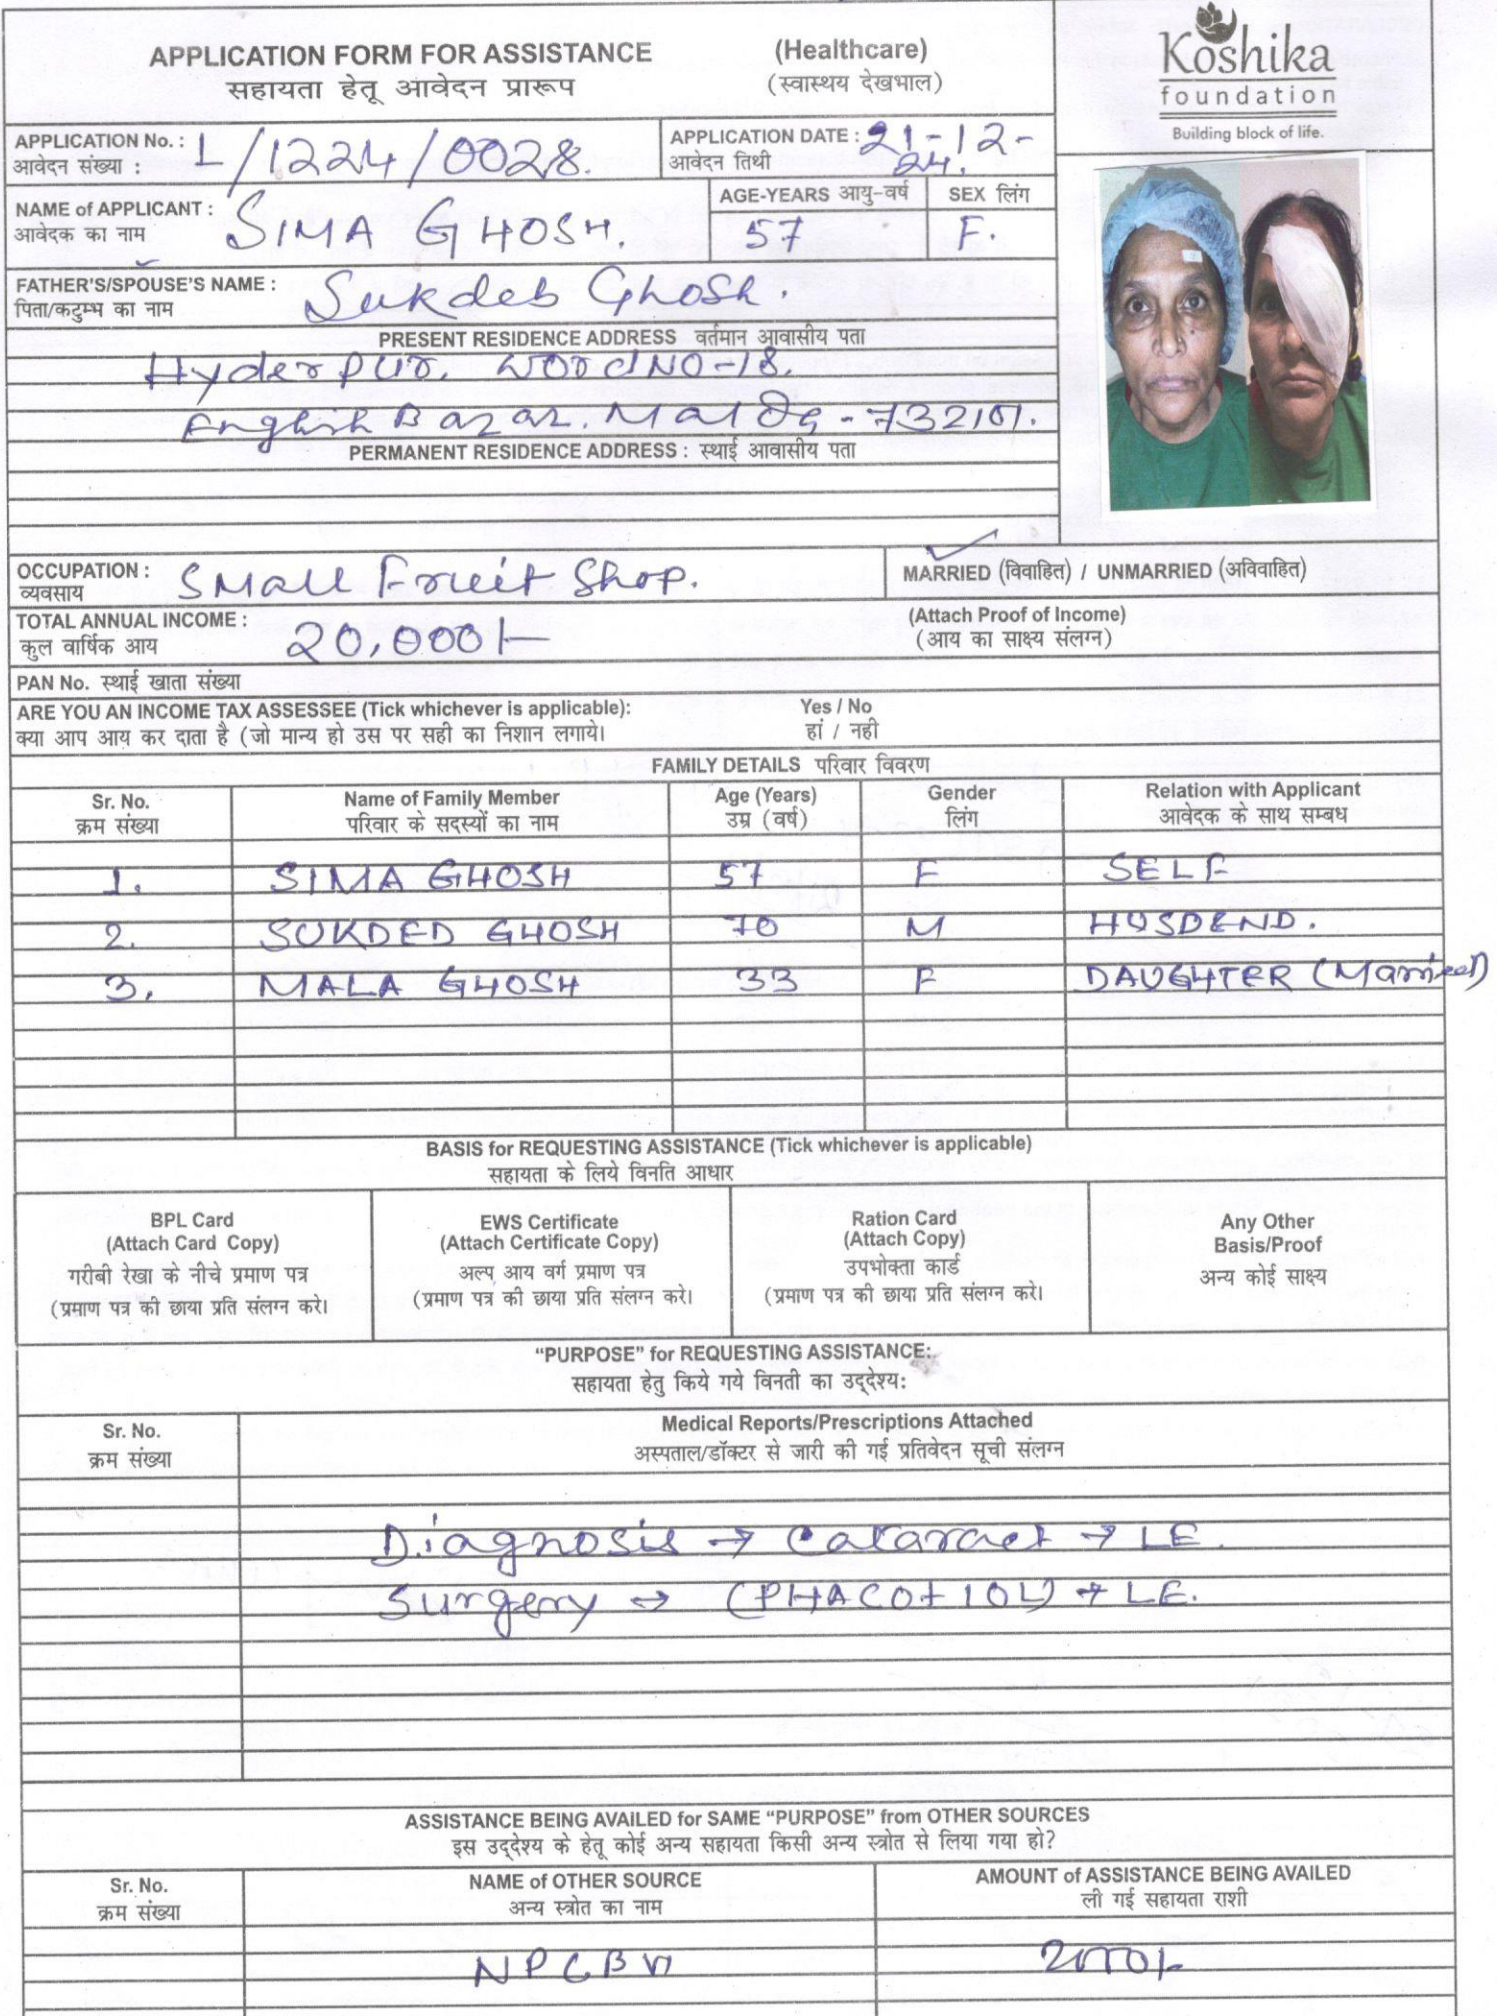 APPLICATION FORM FOR ASSISTANCE (Healthcare)
सहायता हेतू आवेदन प्रारूप (स्वास्थय देखभाल)
Koshika
foundation
Building block of life.
APPLICATION No. : L/1224/0028.
आवेदन संख्या :
APPLICATION DATE : 21-12-24.
आवेदन तिथी
NAME of APPLICANT : SIMA GHOSH.
आवेदक का नाम
AGE-YEARS आयु-वर्ष SEX लिंग
57 F.
FATHER'S/SPOUSE'S NAME : Sukdeb Ghosh.
पिता/कटुम्भ का नाम
PRESENT RESIDENCE ADDRESS वर्तमान आवासीय पता
Hyderpur. word NO-18.
English Bazar. Malda - 732101.
PERMANENT RESIDENCE ADDRESS : स्थाई आवासीय पता
OCCUPATION : Small Fruit Shop.
व्यवसाय
MARRIED (विवाहित) / UNMARRIED (अविवाहित)
TOTAL ANNUAL INCOME : 20,000/-
कुल वार्षिक आय
(Attach Proof of Income)
(आय का साक्ष्य संलग्न)
PAN No. स्थाई खाता संख्या
ARE YOU AN INCOME TAX ASSESSEE (Tick whichever is applicable): Yes / No
क्या आप आय कर दाता है (जो मान्य हो उस पर सही का निशान लगाये। हां / नही
FAMILY DETAILS परिवार विवरण
Sr. No. Name of Family Member Age (Years) Gender Relation with Applicant
क्रम संख्या परिवार के सदस्यों का नाम उम्र (वर्ष) लिंग आवेदक के साथ सम्बध
1. SIMA GHOSH 57 F SELF
2. SUKDED GHOSH 70 M HUSDEND.
3. MALA GHOSH 33 F DAUGHTER (Married)
BASIS for REQUESTING ASSISTANCE (Tick whichever is applicable)
सहायता के लिये विनति आधार
BPL Card
(Attach Card Copy)
गरीबी रेखा के नीचे प्रमाण पत्र
(प्रमाण पत्र की छाया प्रति संलग्न करे।
EWS Certificate
(Attach Certificate Copy)
अल्प आय वर्ग प्रमाण पत्र
(प्रमाण पत्र की छाया प्रति संलग्न करे।
Ration Card
(Attach Copy)
उपभोक्ता कार्ड
(प्रमाण पत्र की छाया प्रति संलग्न करे।
Any Other
Basis/Proof
अन्य कोई साक्ष्य
"PURPOSE" for REQUESTING ASSISTANCE:
सहायता हेतु किये गये विनती का उद्देश्य:
Sr. No. Medical Reports/Prescriptions Attached
क्रम संख्या अस्पताल/डॉक्टर से जारी की गई प्रतिवेदन सूची संलग्न
Diagnosis → Cataract → LE.
Surgery → (PHACO+IOL) → LE.
ASSISTANCE BEING AVAILED for SAME "PURPOSE" from OTHER SOURCES
इस उद्देश्य के हेतू कोई अन्य सहायता किसी अन्य स्त्रोत से लिया गया हो?
Sr. No. NAME of OTHER SOURCE AMOUNT of ASSISTANCE BEING AVAILED
क्रम संख्या अन्य स्त्रोत का नाम ली गई सहायता राशी
NPCBVI 2000/-